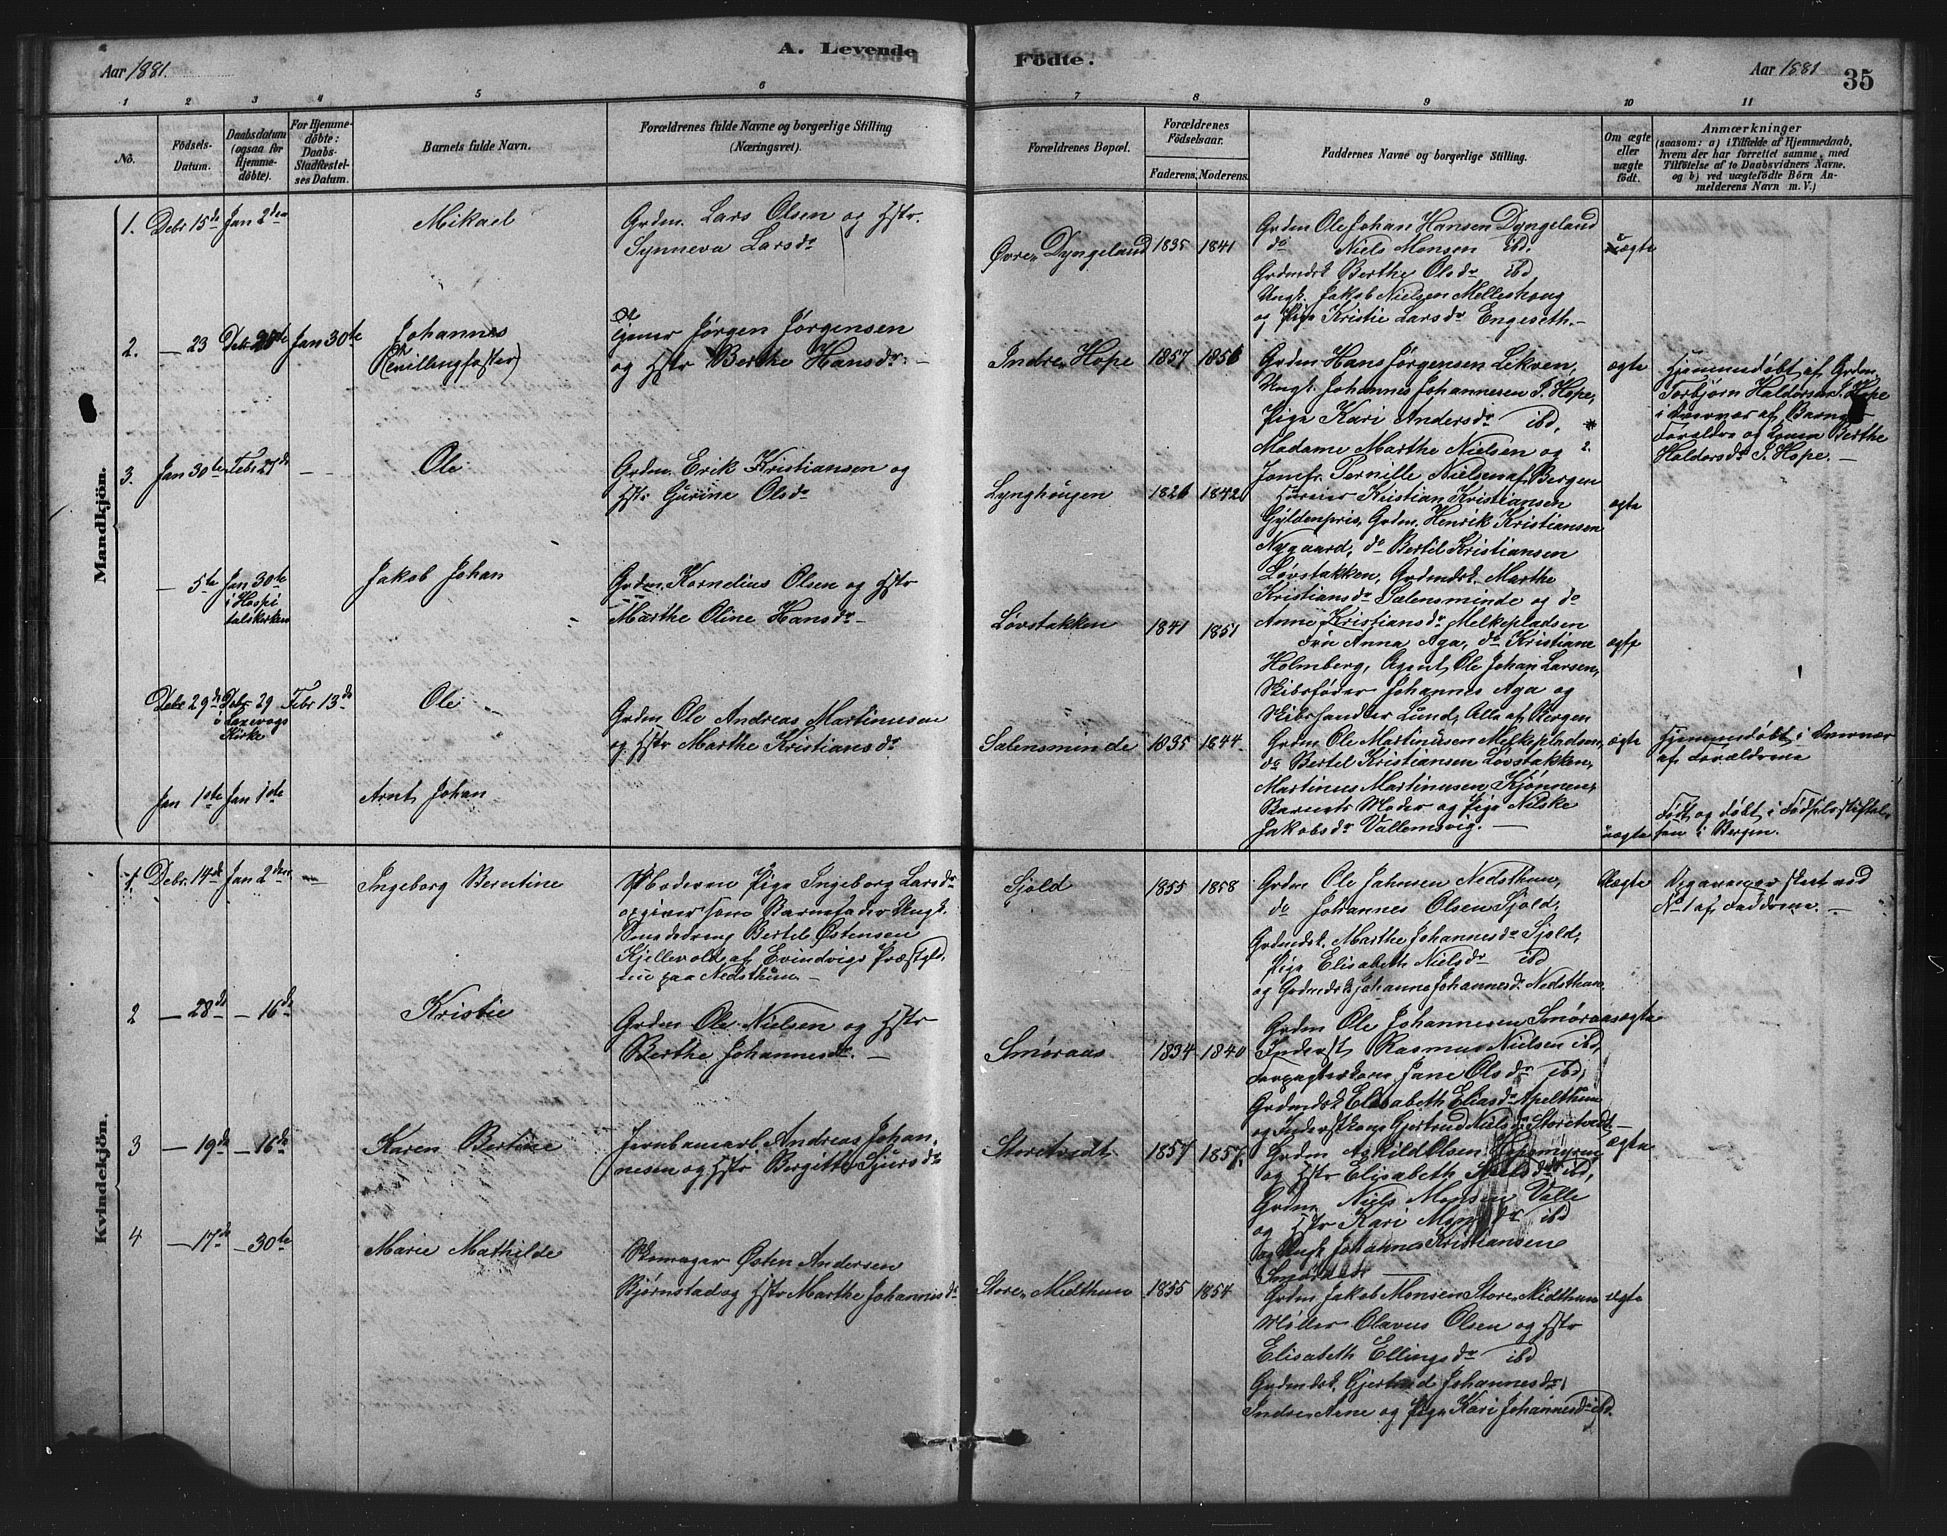 Aar 1881.
A. Levende
Födte.
Aar 1881
35
1
2
3
4
5
6
7
8
9
10
11
No.
Födsels-
Datum.
Daabsdatum
(ogsaa for
Hjemme-
döbte).
For Hjemme-
döbte:
Daabs-
Stadfestel-
ses Datum.
Barnets fulde Navn.
Forældrenes fulde Navne og borgerlige Stilling
(Næringsvei).
Forældrenes Bopæl.
Forældrenes
Födselsaar.
Faderens.
Moderens.
Faddernes Navne og borgerlige Stilling.
Om ægte
eller
uægte
födt.
Anmærkninger
(saasom: a) i Tilfælde af Hjemmedaab,
hvem der har forrettet samme, med
Tilföielse af to Daabsvidners Navne.
og b) ved uægtefödte Börn An-
melderens Navn m. V.)
Mandkjön.
1. Debr 15de Jan 2den
Mikael
Grdm. Lars Olsen og Hstr.
Synneva Larsdr
Øvre Dyngeland 1835 1841
Grdm Ole Johan Hansen Dyngeland
do Niels Monsen ibd.
Grdmdsk Berthe Olsdr ibd
Ungk. Jakob Nielsen Melleshaug
og Pige Kristie Larsdr Engeseth.
ægte
2. — 23 Debr Jan 30te
Johannes
Jørgen Jørgensen
og Hstr Berthe Hansdr. —
Indre Hope 1857 1856
Grdm Hans Jørgensen Lekven,
Ungk. Johannes Johannesen I. Hope,
Pige Kari Andersdr ibd.
Madame Marthe Nielsen og
Jomfr. Pernille Nielsen af Bergen
ægte
Hjemmedøbt af Grdm.
Torbjørn Haldorsen I. Hope
i Nærvær af Barnets
Forældre og Konen Berthe
Haldorsdr I. Hope. —
3. Jan 30te Febr 27de —
Ole
Grdm. Erik Kristiansen og
Hstr Gurine Olsdr
Lynghaugen 1826 1842
Kristian Kristiansen
Gyldenpris, Grdm. Henrik Kristiansen
Nygaard, do Bertel Kristiansen
Løvstakken, Grdmdsk. Marthe
Kristiansdr Sælensminde og do
Anne Kristiansdr Melkepladsen
ægte
— 5te Jan 30te
i Hospi
talskirken
Jakob Johan
Grdm. Kornelius Olsen og Hstr
Marthe Oline Hansdr —
Løvstakken 1841 1851
Frü Anna Aga, do Kristiane
Holmberg, Agent Ole Johan Larsen,
Skibsfører Johannes Aga og
Skibshandler Lund, Alle af Bergen
ægte
Debr 29de Debr 29 Febr 13de
i Laxevogs
Kirke
Ole
Grdm Ole Andreas Martinusen
og Hstr Marthe Kristiansdr
Sælensminde 1835 1844
Grdm. Ole Martinusen Melkepladsen,
do Bertel Kristiansen Løvstakken,
Martinus Martinusen Kjønnen,
Barnets Moder og Pige Nilske
Jakobsdr Vallemsvig. —
ægte
Hjemmedøbt i Nærvær
af Forældrene
Jan 1ste Jan 1ste
Arnt Johan
uægte
Født og døbt i Fødselsstiftel-
sen i Bergen.
Kvindekjön.
1. Debr. 14de Jan 2den —
Ingeborg Berntine
Moderen Pige Ingeborg Larsdr
opgiver som Barnefader Ungk.
Bertel Østensen
Kjellevold af Evindvigs Præstgld.
paa Nedsthun. —
Sjold 1855 1858
Grdm Ole Jahnsen Nedsthun,
do Johannes Olsen Sjold,
Grdmdsk. Marthe Johannesdr Sjold,
Pige Elisabeth Nielsdr ibd
og Grdmdsk Johanne Johannesdr Nedsthun.
Uægte
No 1 af Fadderne. —
2 — 28de — 16de
Kristie
Grdm Ole Nielsen og Hstr
Berthe Johannesdr. —
Smøraas 1834 1840
Grdm Ole Johannesen Smøraas
Inderst Rasmus Nielsen ibd,
Forpagterkone Jane Olsdr ibd,
Grdmdsk Elisabeth Eliasdr Apelthun
og Inderstkone Gjertrud Nielsdr Storetvedt
ægte
3 — 19de — 16de
Karen Bertine
Jernbanearb. Andreas Johan-
nesen og Hstr Bergitte Sjursdr
Storetvedt 1857 1857
Grdm Askild Olsen
og Hstr Elisabeth Nielsdr ibd,
Grdm Niels Monsen Valle
og Hstr Kari Monsdr ibd
og Ungk Johannes Kristiansen
ægte
4 — 17de — 30te
Marie Mathilde
Skomager Østen Andersen
Bjørnstad og Hstr Marthe Johannesdr
Store Midthun 1855 1854
Grdm Jakob Monsen Store Midthun
Møller Olavus Olsen og Hstr
Elisabeth Ellingsdr ibd
Grdmdsk. Gjertrud Johannesdr
Indre Arne og Pige Kari Johannesdr ibd.
ægte